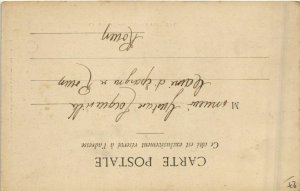 CARTE POSTALE
Ce côté est exclusivement réservé à l'adresse
Monsieur Gustave
Caisse d'épargne Rouen
Rouen